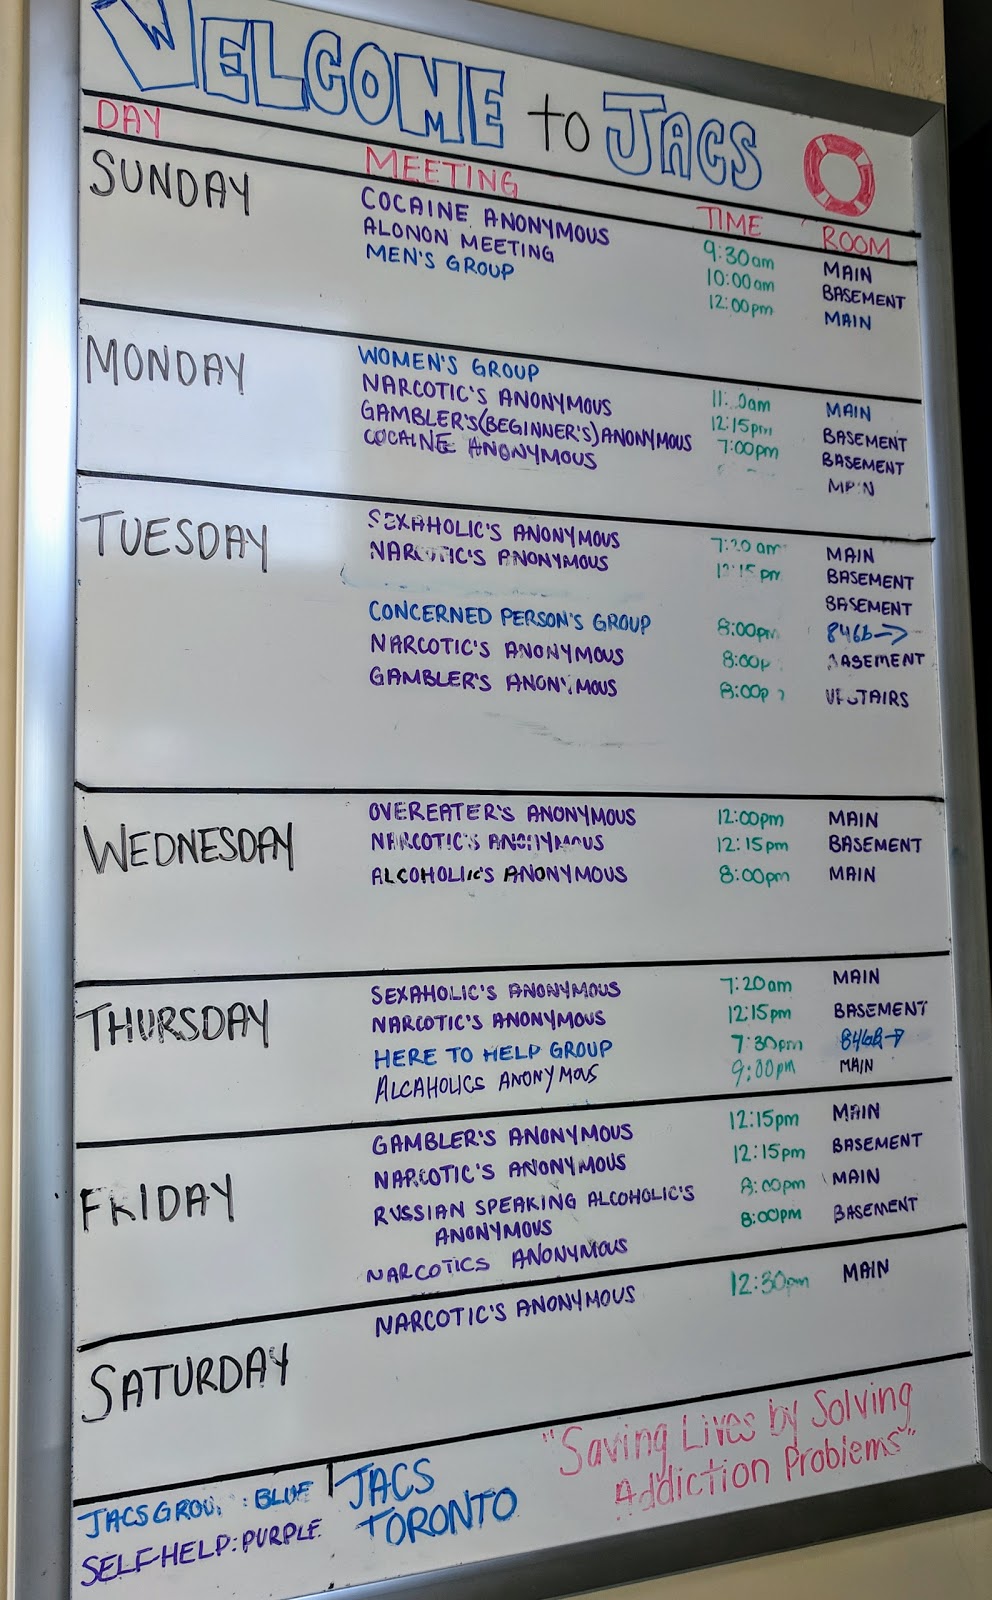 WELCOME to JACS
DAY MEETING TIME ROOM
SUNDAY COCAINE ANONYMOUS 9:30am MAIN
ALONON MEETING 10:00am BASEMENT
MEN'S GROUP 12:00pm MAIN
MONDAY WOMEN'S GROUP MAIN
NARCOTIC'S ANONYMOUS 12:15pm BASEMENT
GAMBLER'S(BEGINNER'S)ANONYMOUS 7:00pm BASEMENT
COCAINE ANONYMOUS
TUESDAY SEXAHOLIC'S ANONYMOUS 7:20 am MAIN
NARCOTIC'S ANONYMOUS 12:15 pm BASEMENT
BASEMENT
CONCERNED PERSON'S GROUP 8:00pm 846b→
NARCOTIC'S ANONYMOUS 8:00p BASEMENT
GAMBLER'S ANONYMOUS 8:00p UPSTAIRS
WEDNESDAY OVEREATER'S ANONYMOUS 12:00pm MAIN
NARCOTIC'S ANONYMOUS 12:15pm BASEMENT
ALCOHOLIC'S ANONYMOUS 8:00pm MAIN
THURSDAY SEXAHOLIC'S ANONYMOUS 7:20am MAIN
NARCOTIC'S ANONYMOUS 12:15pm BASEMENT
HERE TO HELP GROUP 7:30pm 846B→
ALCAHOLICS ANONYMOUS 9:00pm MAIN
FRIDAY GAMBLER'S ANONYMOUS 12:15pm MAIN
NARCOTIC'S ANONYMOUS 12:15pm BASEMENT
RUSSIAN SPEAKING ALCOHOLIC'S 8:00pm MAIN
ANONYMOUS 8:00pm BASEMENT
NARCOTICS ANONYMOUS
SATURDAY NARCOTIC'S ANONYMOUS 12:30pm MAIN
JACS GROUP: BLUE
SELF-HELP: PURPLE
JACS
TORONTO
"Saving Lives by Solving
Addiction Problems"